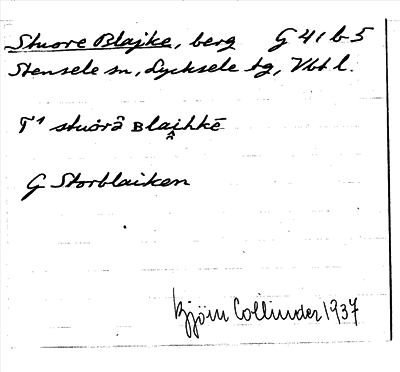 Stuore Blajke, berg G 41 b 5
Stensele sn, Lycksele tg, Vbt l.
T¹ stuorâ Blai̭hkē
G Storblaiken
Björn Collinder 1937